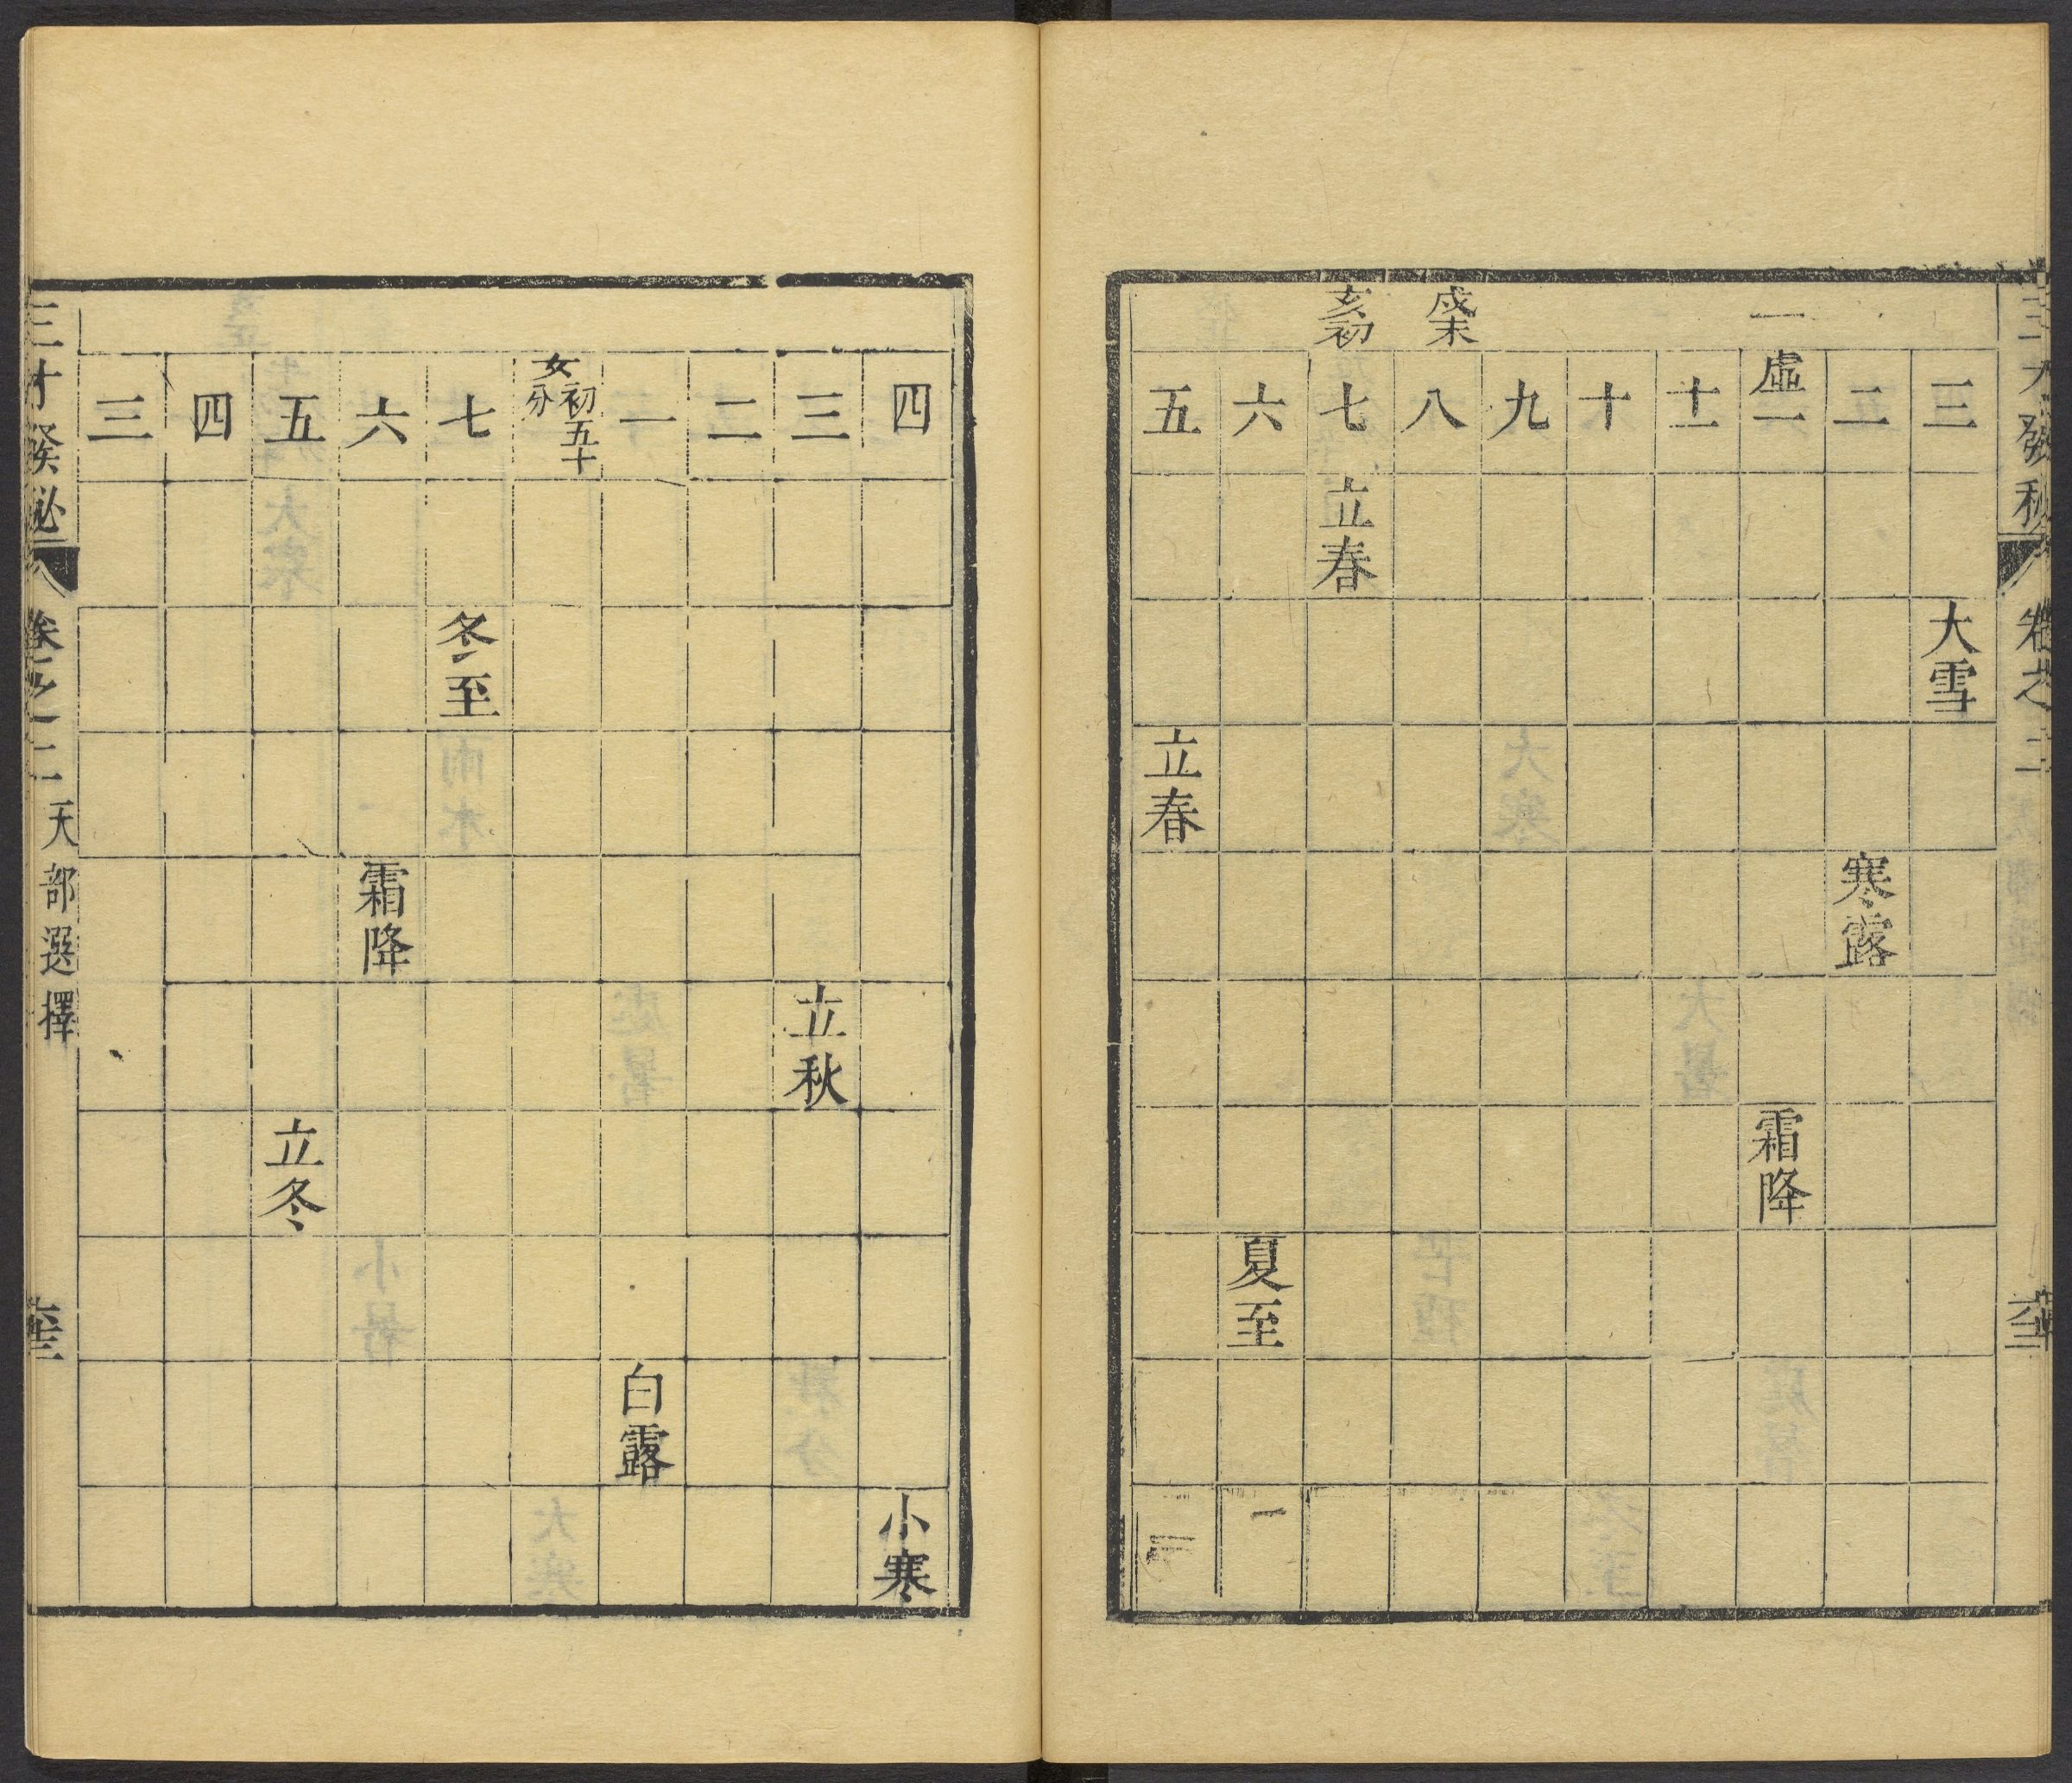 三才發秘
卷之二
一
三
大雪
二
寒露
虛一
霜降
十一
十
九
戌末
八
亥初
七
立春
六
夏至
一
五
立春
四
小寒
三
立秋
二
一
白露
女初五十分
七
冬至
六
霜降
五
立冬
四
三
三才發秘
卷之二
天部選擇